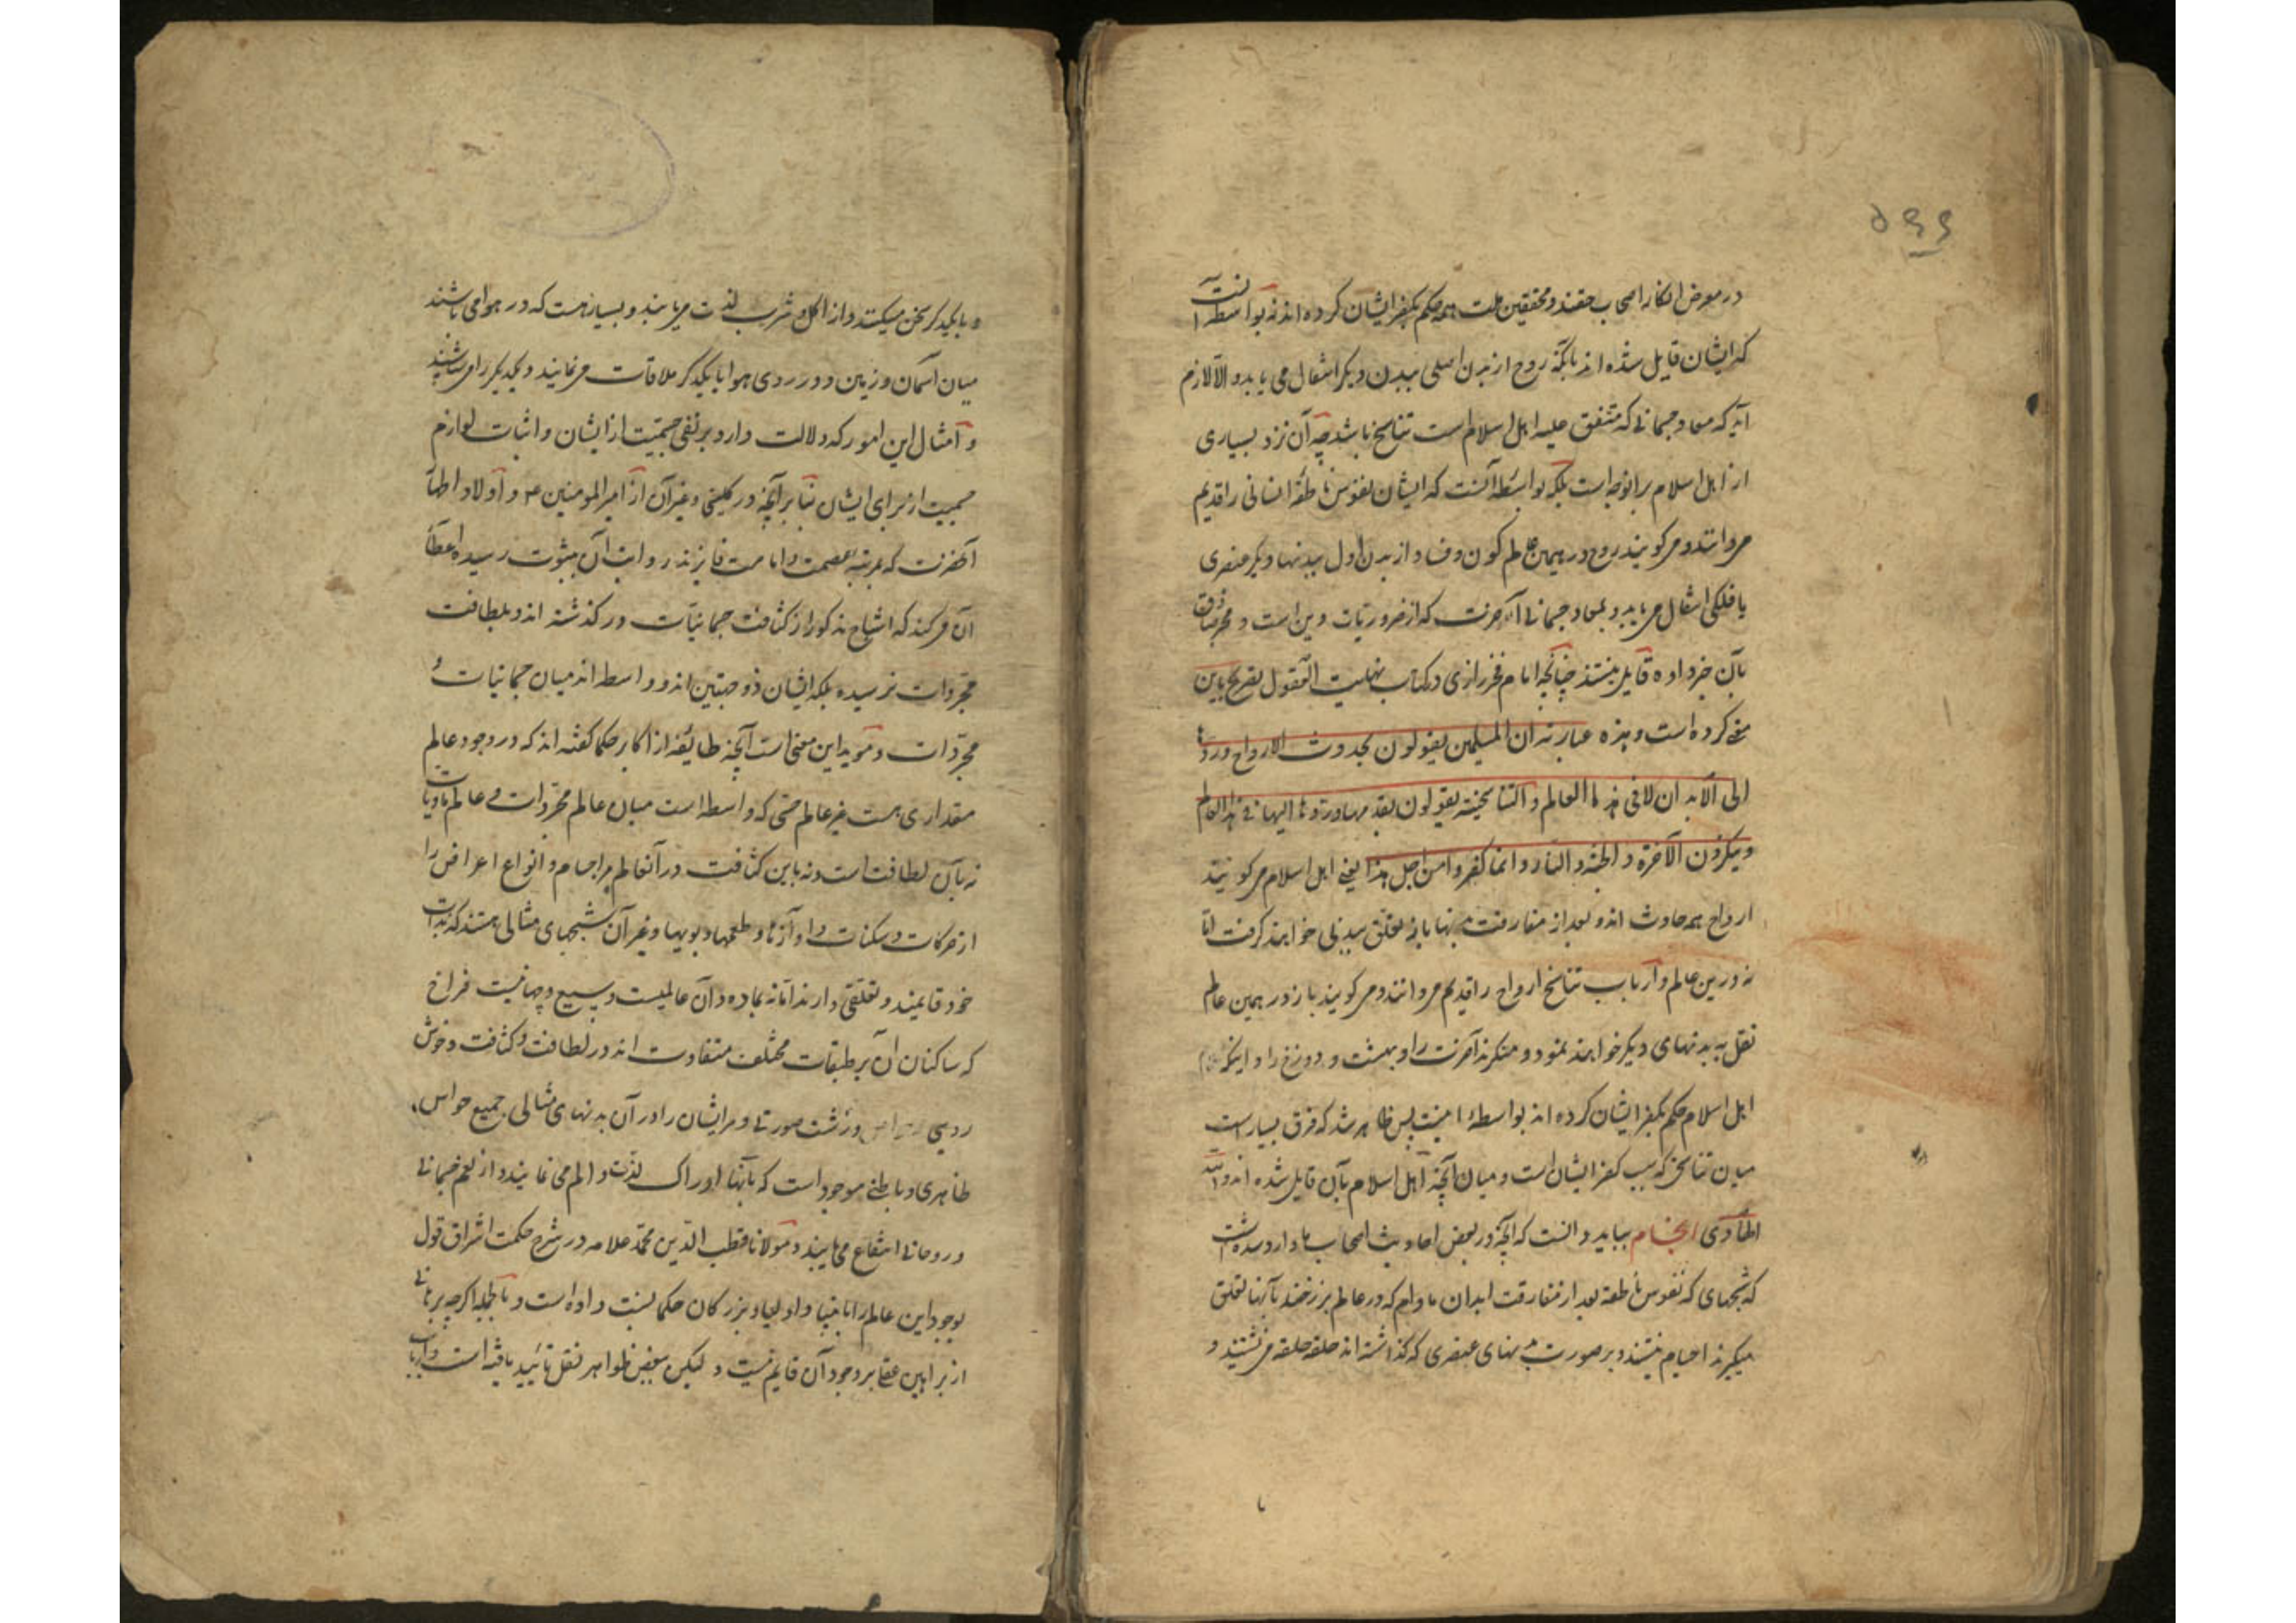 در معرض انکار اصحاب حقند و محققین ملت همه حکم بکفر ایشان کرده اند نه بواسطه آنست
که ایشان قایل شده اند بآنکه روح از بدن اصلی ببدن دیگر انتقال می یابد و الا لازم
آید که معاد جسمانی که متفق علیه اهل اسلام است تناسخ باشد چه آن نزد بسیاری
از اهل اسلام براینوجه است بلکه بواسطه آنست که ایشان نفوس ناطقه انسانی را قدیم
میدانند و میگویند روح در همین عالم کون و فساد از بدن اول ببدنهاء دیگر عنصری
یا فلکی انتقال می یابد و بمعاد جسمانی آخرت که از ضروریات دین است و مخبر صادق
بآن خبر داده قایل نیستند چنانچه امام فخر رازی در کتاب نهایت العقول تصریح باین
معنی کرده است و هذه عبارته ان المسلمین یقولون بحدوث الارواح وردها
الی الابدان لا فی هذا العالم و التناسخیة یقولون بقدمها و ردها الیها فی هذا العالم
و ینکرون الآخرة و الجنة و النار و انما کفروا من اجل هذا یعنی اهل اسلام میگویند
ارواح همه حادث اند و بعد از مفارقت بدنها باز تعلق ببدنی خواهند گرفت اما
نه درین عالم و ارباب تناسخ ارواح را قدیم میدانند و میگویند باز در همین عالم
نقل به بدنهای دیگر خواهند نمود و منکرند آخرت را و بهشت و دوزخ را و اینکه
اهل اسلام حکم بکفر ایشان کرده اند بواسطهٔ اینست پس ظاهر شد که فرق بسیار است
میان تناسخی که سبب کفر ایشان است و میان آنچه اهل اسلام بآن قایل شده اند و الله
الهادی انجام بباید دانست که آنچه در بعض احادیث اصحاب ما وارد شده اینست
که شبحهای که نفوس ناطقه بعد از مفارقت ابدان مادام که در عالم برزخند بآنها تعلق
میگیرند اجسام نیستند و بر صورت بدنهای عنصری که گذاشته اند حلقه حلقه می نشینند و
و با یکدیگر سخن میکنند و از اکل و شرب لذت می یابند و بسیار هست که در هوا می باشند
میان آسمان و زمین و در روی هوا با یکدیگر ملاقات مینمایند و یکدیگر را می شناسند
و امثال این امور که دلالت دارد بر نفی جسمیت از ایشان و اثبات لوازم
جسمیت از برای ایشان بنا بر آنچه در کلینی و غیر آن از امیر المومنین ع و اولاد اطهار
آنحضرت که بمرتبه عصمت و امامت فایزند روایت آن بثبوت رسیده اعطاء
آن میکند که اشباح مذکور از کثافت جسمانیات در گذشته اند و بلطافت
مجردات نرسیده بلکه ایشان ذو جهتین اند و واسطه اند میان جسمانیات و
مجردات و موید این معنی است آنچه طایفه از اکابر حکما گفته اند که در وجود عالم
مقداری هست غیر عالم حسی که واسطه است میان عالم مجردات و عالم مادیات
نه بآن لطافت است و نه باین کثافت در آنعالم مر اجسام و انواع اعراض را
از حرکات و سکنات و آوازها و طعمها و بویها و غیر آن شبحهای مثالی هستند که بذات
خود قایمند و تعلقی دارند اما نه بماده و آن عالمیست وسیع و جهانیست فراخ
که ساکنان آن بر طبقات مختلف متفاوت اند در لطافت و کثافت و خوش
روی و زشت صورتی و مر ایشان را در آن بدنهای مثالی جمیع حواس
ظاهری و باطنی موجود است که بآنها ادراک لذت و الم می نمایند و از نعم جسمانی
و روحانی انتفاع می یابند و مولانا قطب الدین محمد علامه در شرح حکمت اشراق قول
بوجود این عالم را بانبیا و اولیا و بزرگان حکما نسبت داده است و بالجمله اگر چه برهانی
از براهین عقلی بر وجود آن قایم نیست و لیکن ببعض ظواهر نقل تأیید یافته است و ارباب